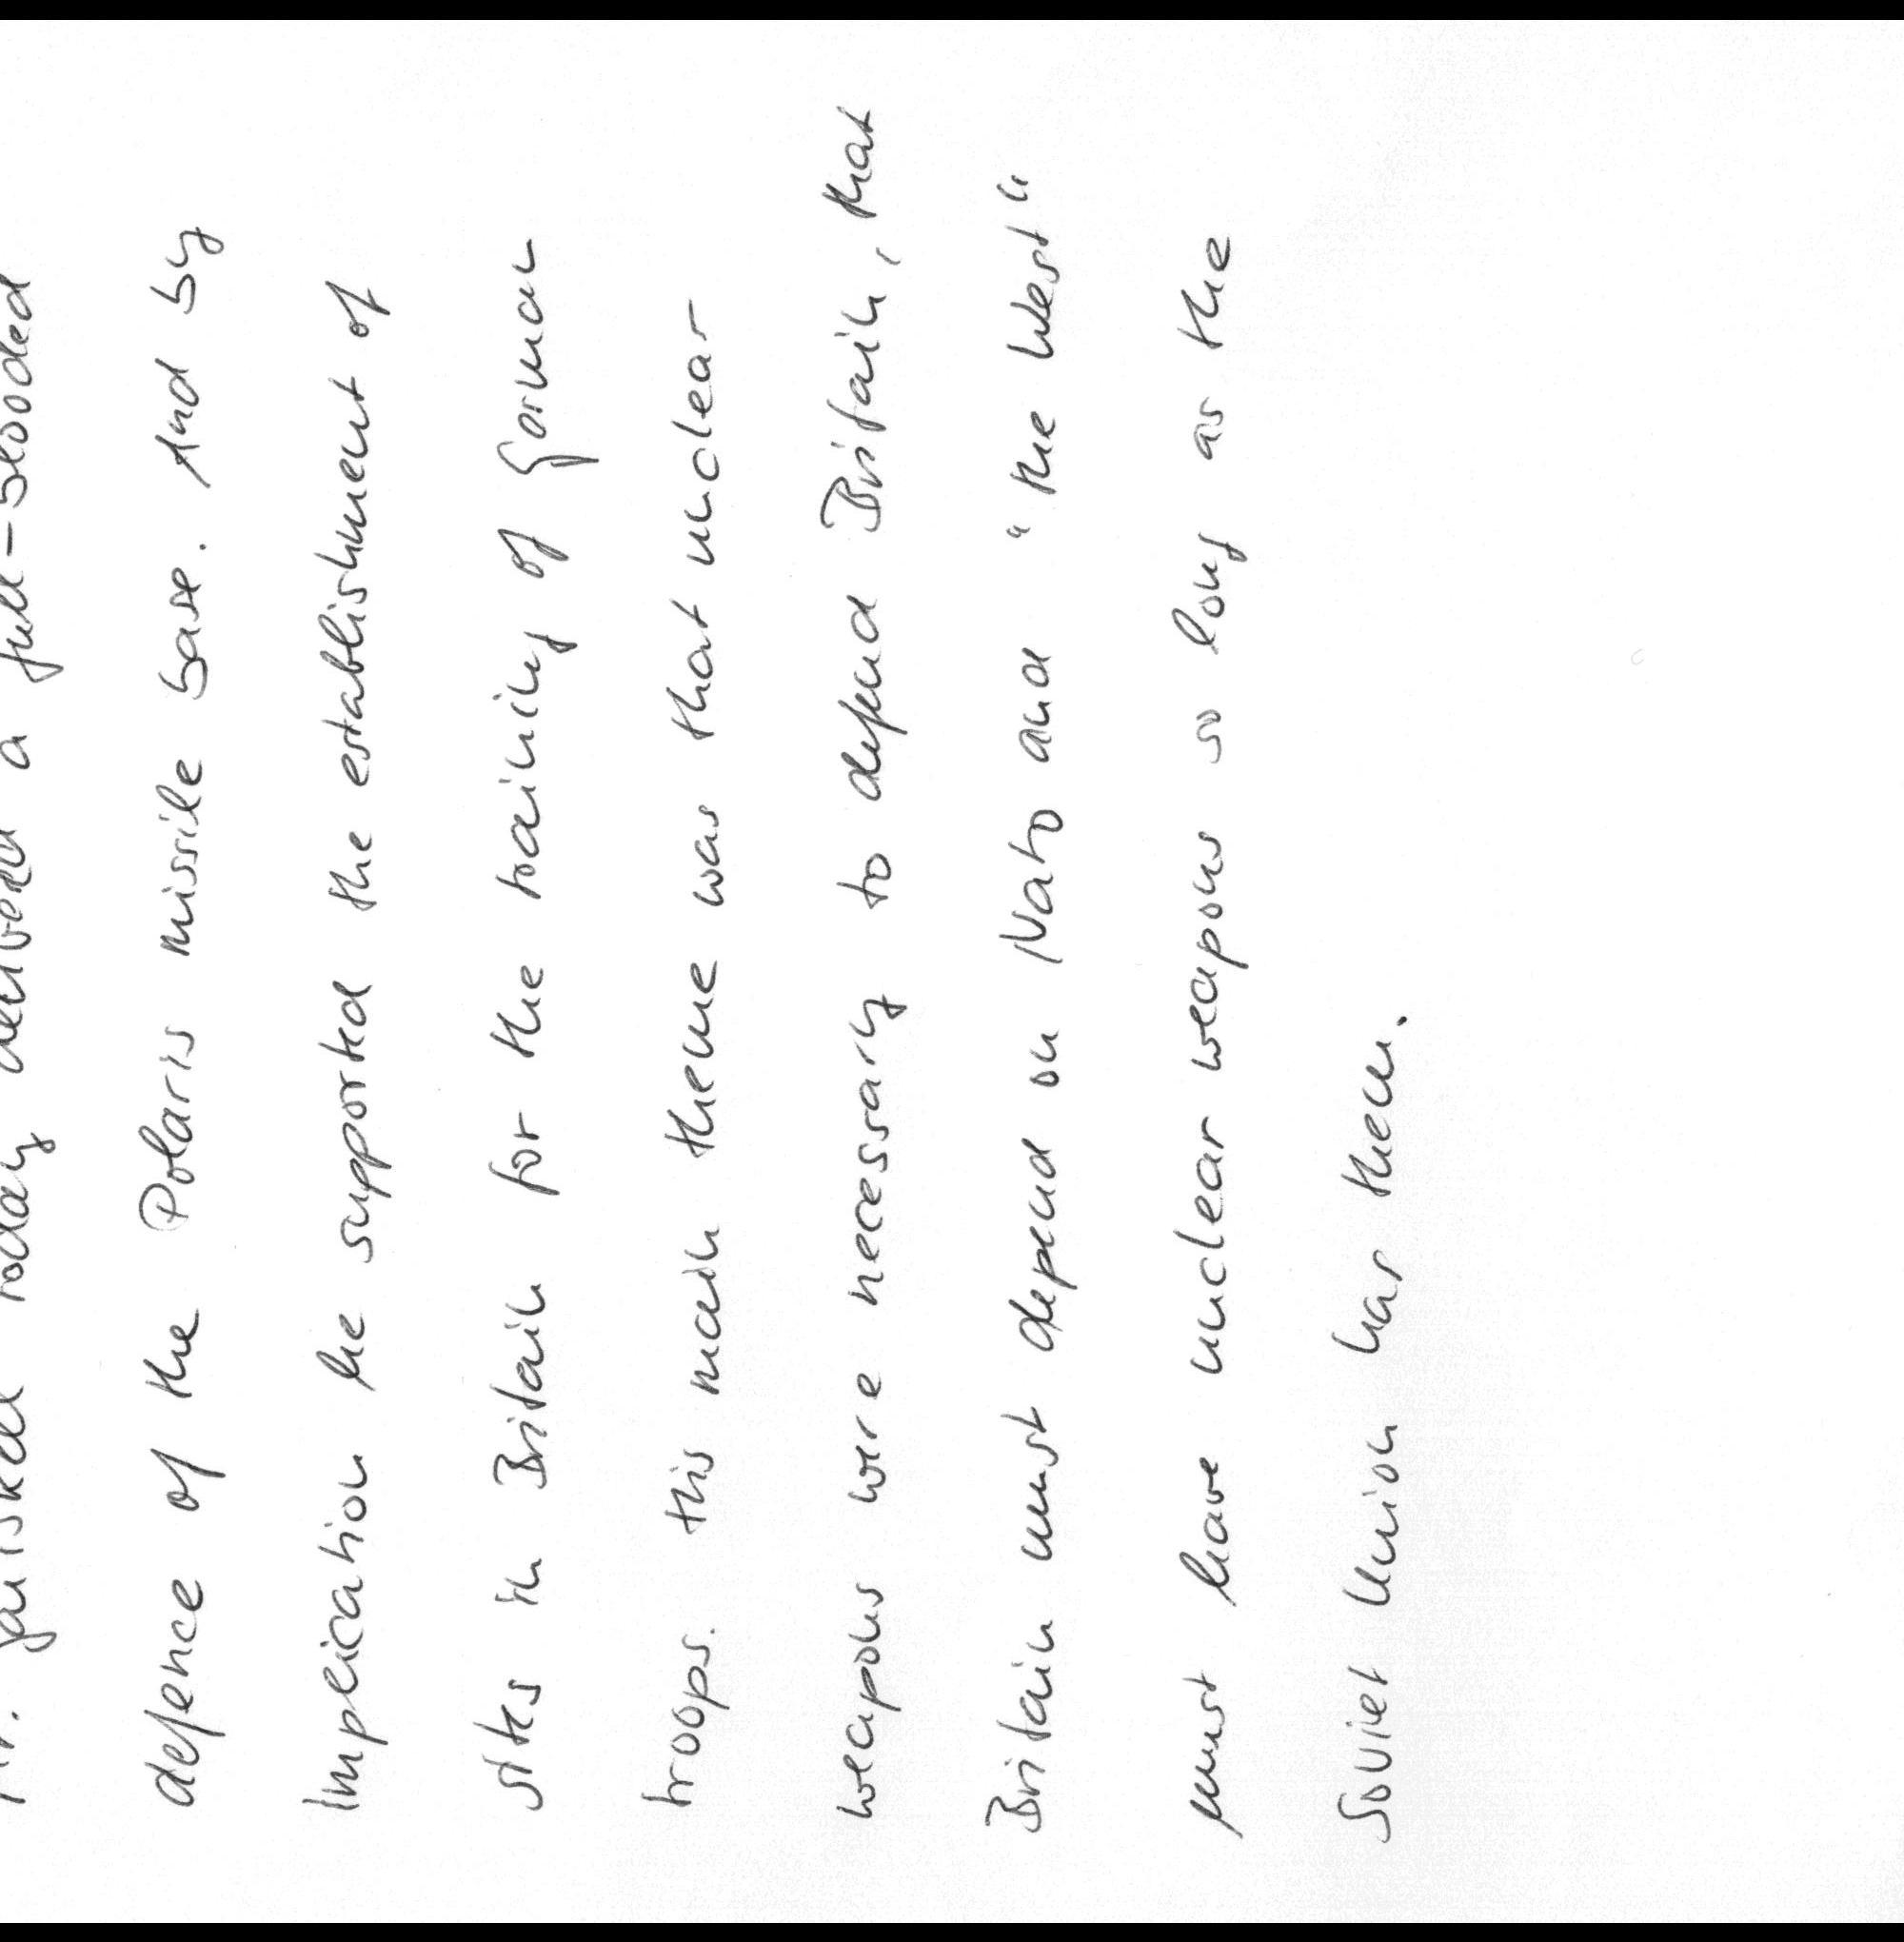 Mr. Gaitskell today delivered a full-blooded
defence of the Polaris missile base. And by
implication he supported the establishment of
sites in Britain for the training of German
troops. His main theme was that nuclear
weapons were necessary to defend Britain, that
Britain must depend on Nato and "the West"
must have nuclear weapons so long as the
Soviet Union has them.